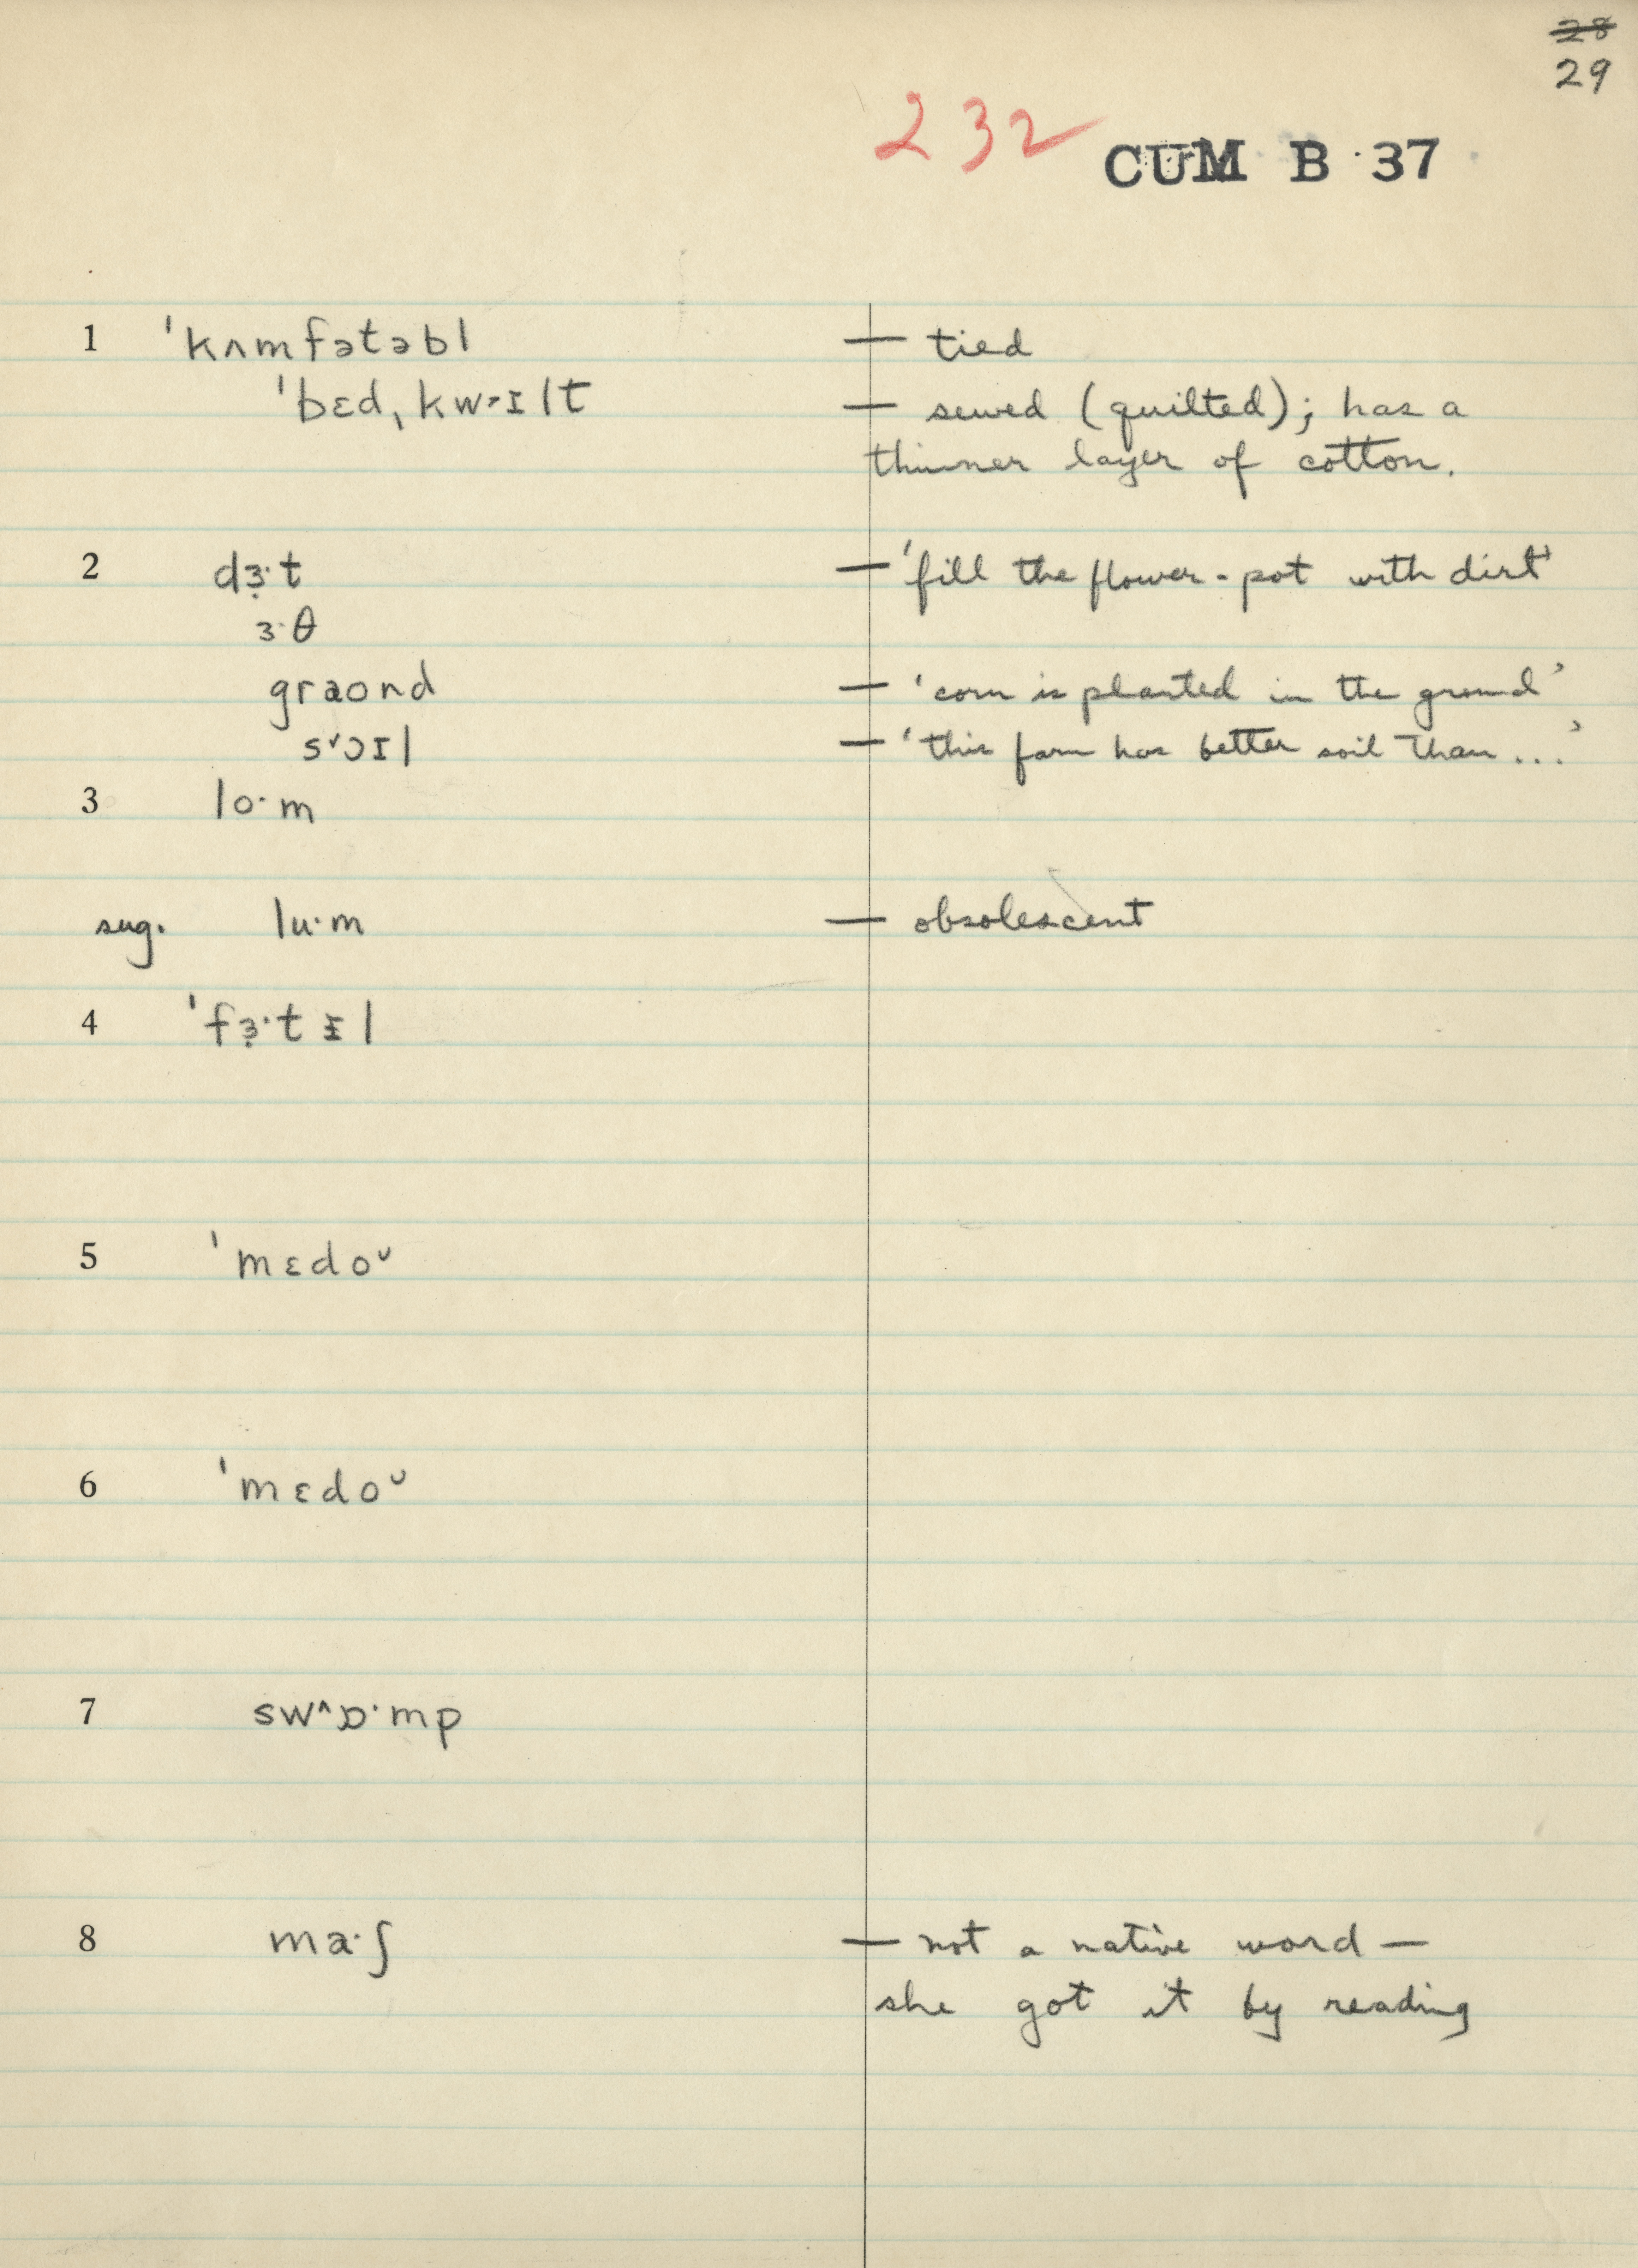 28
29
232 CUM B 37
1 ˈkʌmfətəbl — tied
ˈbɛd, kw˃ɪlt — sewed (quilted); has a
thinner layer of cotton.
2 dɜ̣·t — 'fill the flower-pot with dirt'
ɜ·θ
graond — 'corn is planted in the ground'
s˅ɔɪl — 'this farm has better soil than ...'
3 lo·m
sug. lu·m — obsolescent
4 ˈfɜ̣·tɪ̵l
5 ˈmɛdoᴗ
6 ˈmɛdoᴗ
7 sw^ɒ·mp
8 ma·ʃ — not a native word —
she got it by reading